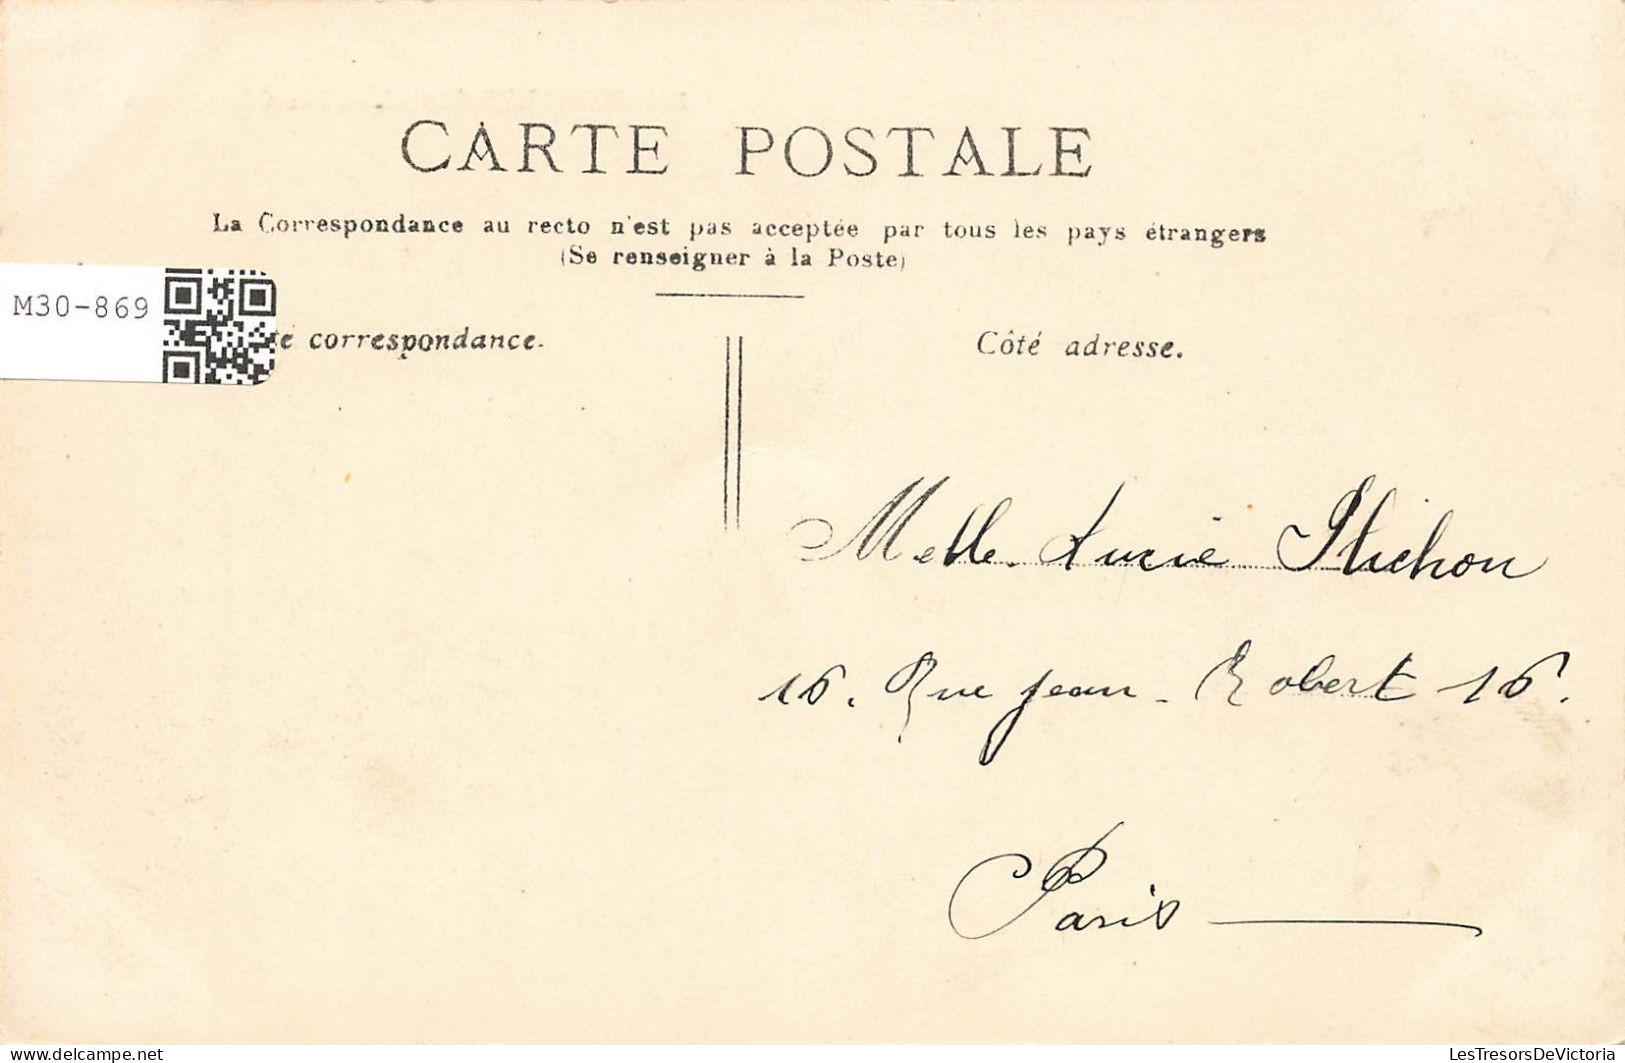 CARTE POSTALE
La Correspondance au recto n'est pas acceptée par tous les pays étrangers
(Se renseigner à la Poste)
M30-869
té correspondance.
Côté adresse.
Melle. Lucie Plichon
16. Rue Jean-Robert 16.
Paris
www.delcampe.net
LesTresorsDeVictoria